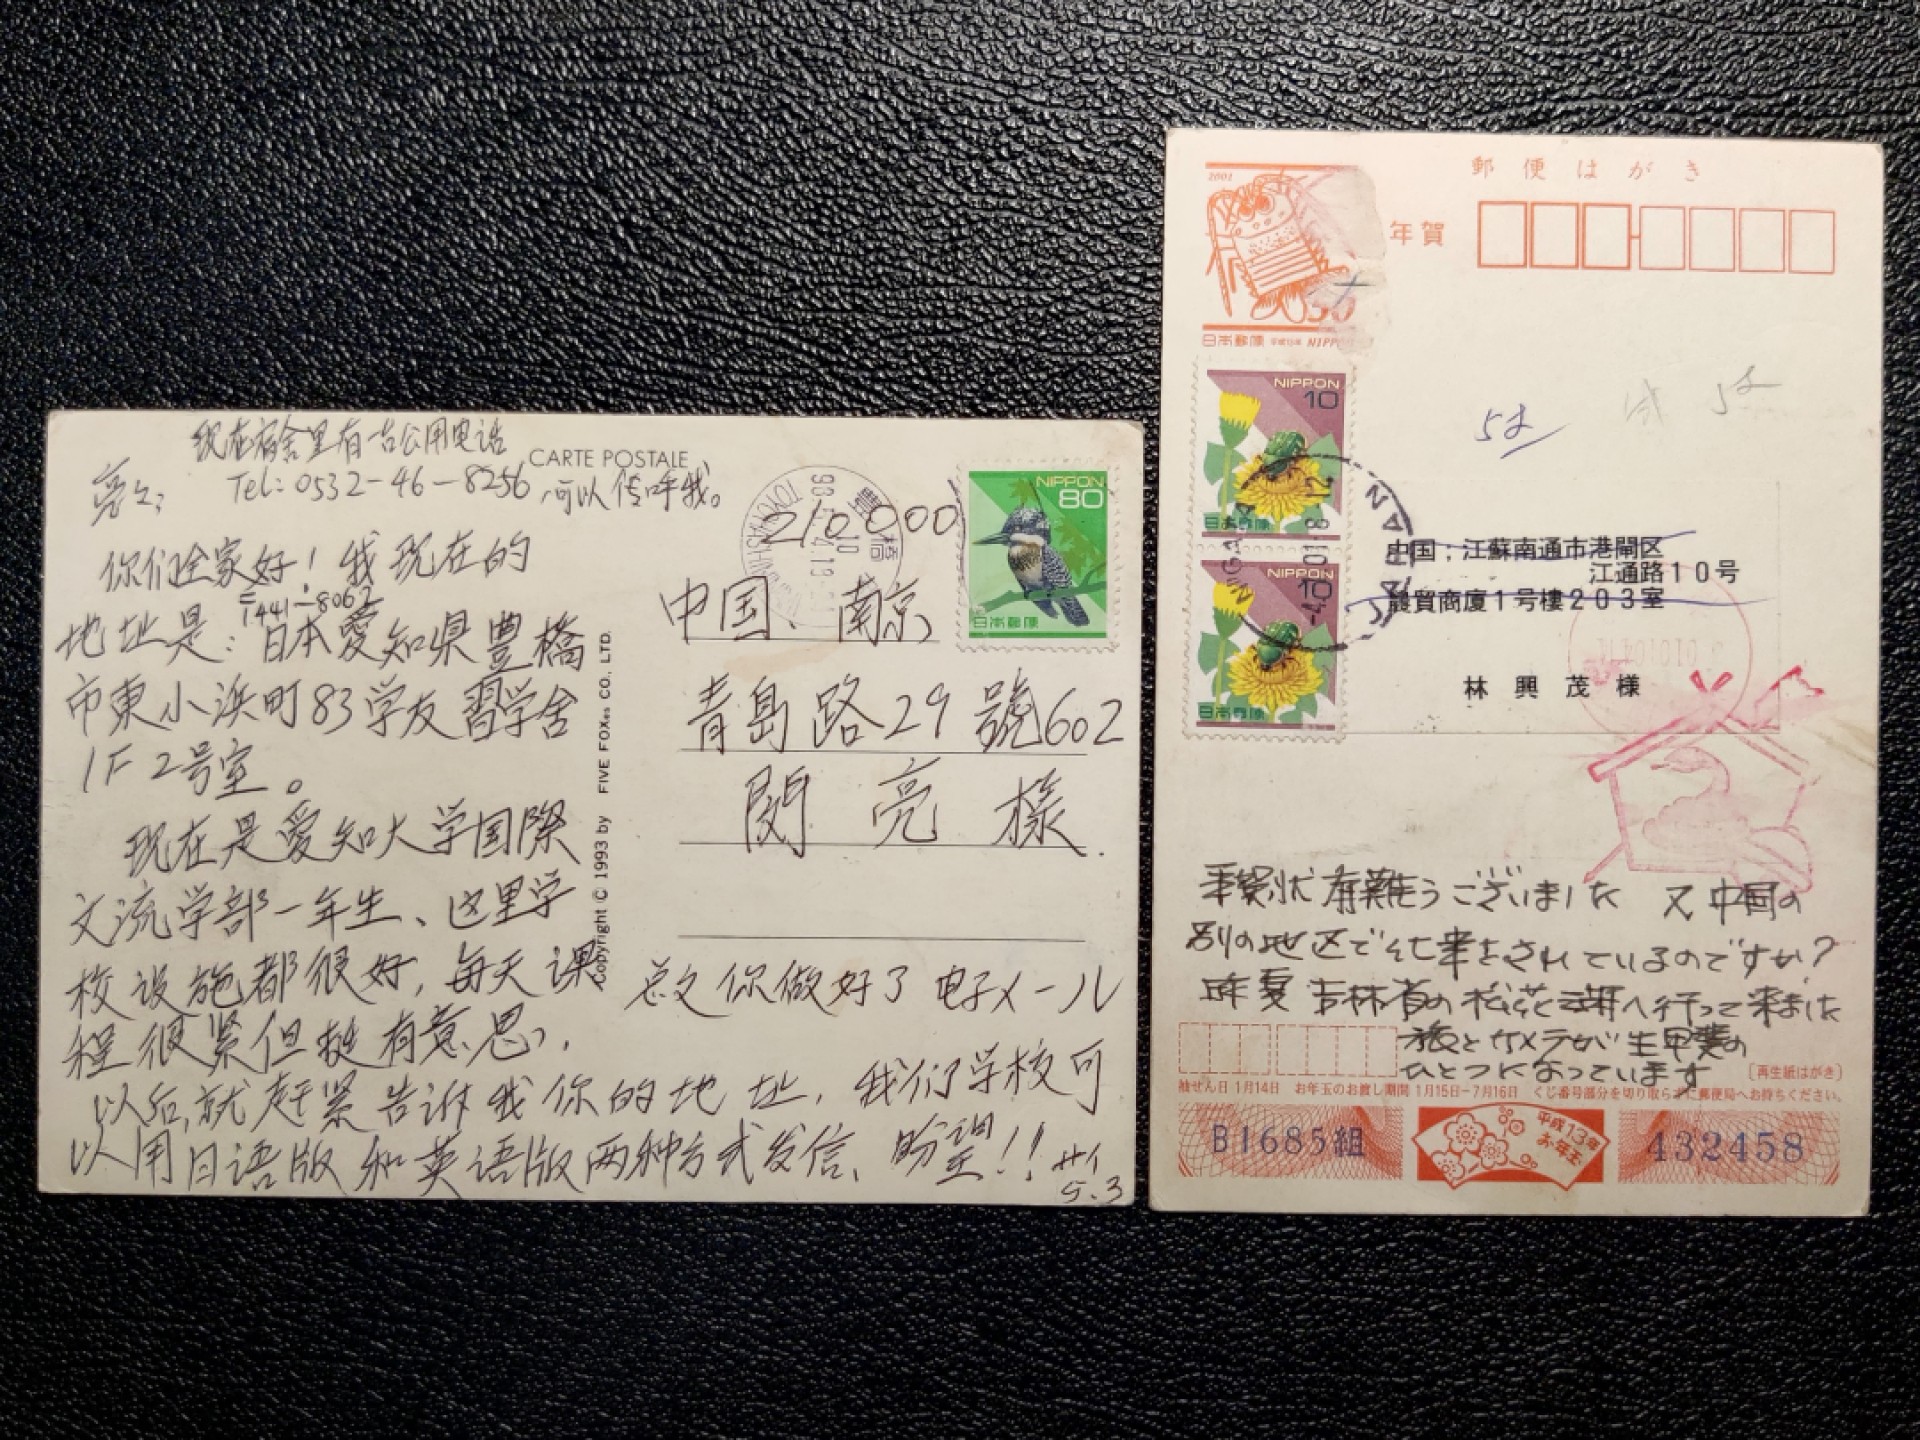 现在宿舍里有台公用电话
CARTE POSTALE
Tel: 0532-46-8256 可以传呼我。
亮亮:
你们全家好! 我现在的
〒441-8062
地址是: 日本愛知県豊橋
市東小浜町83学友習学舎
1F 2号室。
现在是爱知大学国際
交流学部一年生、这里学
校设施都很好, 每天课
程很紧但挺有意思,
Copyright © 1993 by FIVE FOXes CO. LTD.
豊橋
TOYOHASHI
210000
NIPPON
80
日本郵便
中国. 南京
青島路29號602
閔亮様
你做好了电子メール
以后,就赶紧告诉我你的地址, 我们学校可
以用日语版和英语版两种方式发信、盼望!!
5.3
郵便はがき
2001
年賀
50
日本郵便 平成13年 NIPPON
NIPPON
10
日本郵便
NIPPON
10
日本郵便
JAPAN
中国:江蘇南通市港閘区
江通路10号
農貿商廈1号樓203室
林興茂様
年賀状有難うございました 又中国の
別の地区で仕事をされているのですか?
昨年夏吉林省の松花湖へ行って来ました
旅とカメラが生甲斐の
ひとつになっています
〔再生紙はがき〕
抽せん日 1月14日 お年玉のお渡し期間 1月15日-7月16日 くじ番号部分を切り取らずに郵便局へお持ちください。
B1685組
平成13年
お年玉
432458